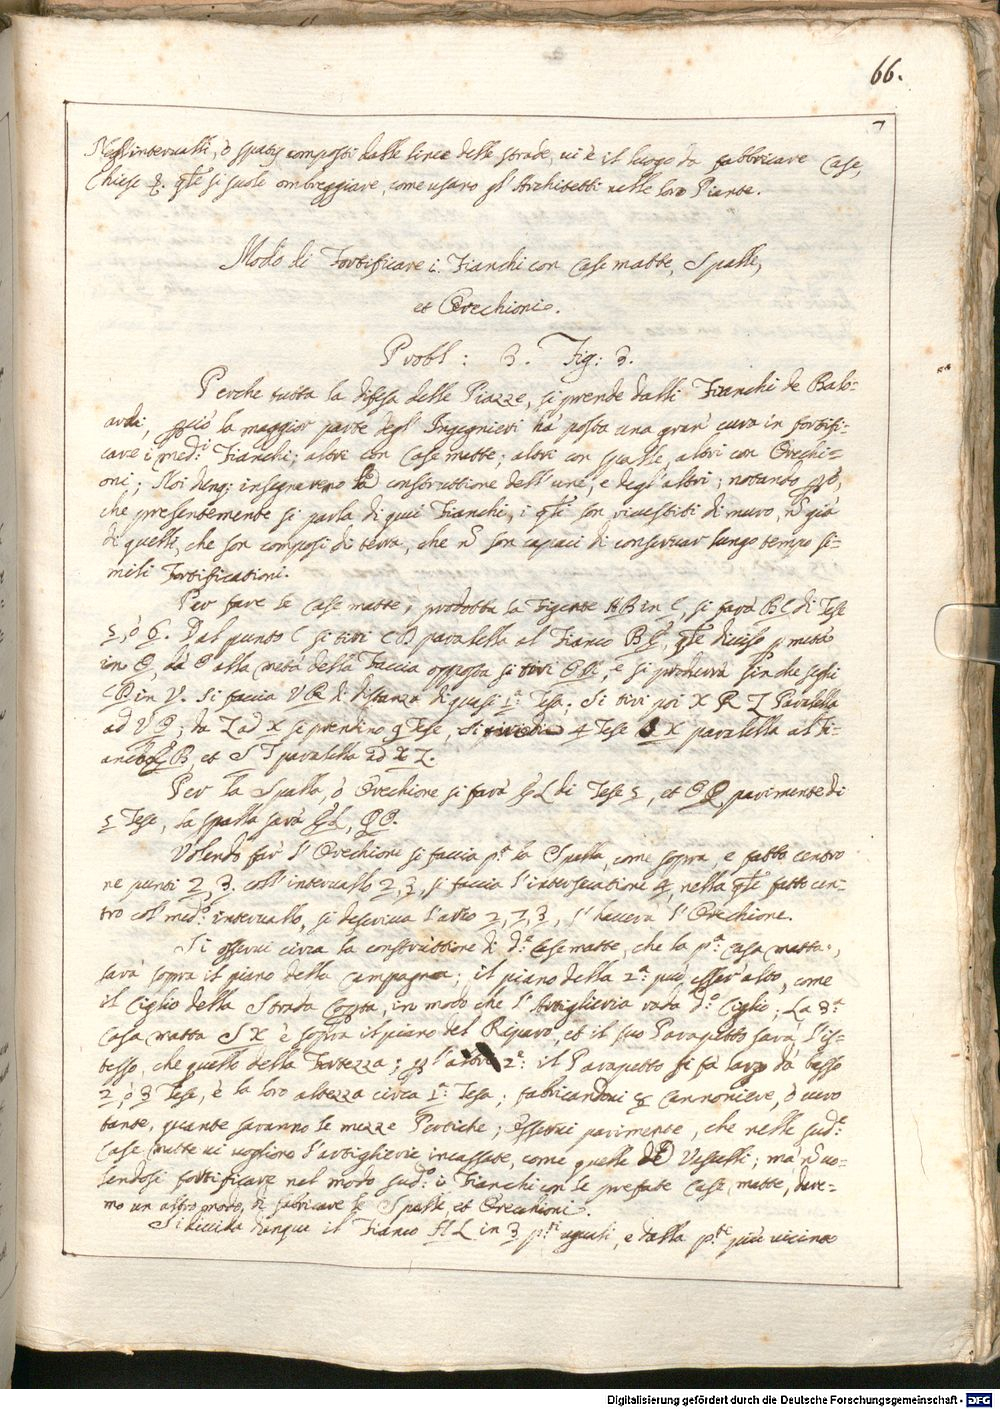 66.
7
Negl'intervalli, ò spatij composti dalle linee delle strade, ui è il luogo da fabbricare Case,
Chiese &. qste si suole ombreggiare, come usano gl'Architetti nelle loro Piante.
Modo di Fortificare i Fianchi con Case matte, Spalle,
et Orechioni.
Probl: 3. Fig: 3.
Perche tutta la difesa delle Piazze, si prende dalli Fianchi de Balo-
ardi, perciò la maggior parte degl'Ingegnieri hà posta una gran' cura in fortifi-
care i med:i Fianchi; altri con Case matte; altri con spalle, altri con Orechi-
oni; Noi dung; insegnaremo la construttione dell'une, e degl'altri; notando
che presentemente si parla di quei Fianchi, i qsti son riuestiti di muro, nõ già
di quelli, che son composi di terra, che nõ son capaci di conseruar lungo tempo si-
mili Fortificationi.
Per fare le Case matte, prodotta la Figente AB in C, si farà BC di Tese
5, ò 6. Dal punto C si tiri CD paralella al Fianco BE, qste diuiso p metà
in O, da O alla metà della Faccia opposta si tiri, e si produrrà sin che seghi
CD in V. Si faccia VR di distanza di quasi 1:a Tesa; Si tiri poi X R Z Paralella
ad VO; da Z ad X si prendino 9 Tese, 4 Tese S X paralella al Fi-
anco B, et S T paralella ad X Z.
Per la Spalla, ò Orechione si farà L di Tese 5, et parimente di
5 Tese, la spalla sarà
Volendo far l'Orechione si faccia p:a la Spalla, come sopra, e fatto centro
ne punti 2, 3. coll'interuallo 2, 3, si faccia l'intersecatione 4, nella qste fatto cen-
tro col med:o interuallo, si descriua l'arco 2, 7, 3, s'hauerà l'Orechione.
Si osserui circa la construttione di d:e Case matte, che la p:a Casa matta,
sarà sopra il piano della Campagna; il piano della 2:a può esser alto, come
il Ciglio della Strada Cop:ta, in modo che l'Artiglieria rada d:o Ciglio; La 3:a
Casa matta S X è sopra il piano del Riparo, et il suo Parapetto sarà l'is-
tesso, che quello della Fortezza; p l'altre 2:e il Parapetto si fà largo da basso
2, ò 3 Tese, è la loro altezza circa 1:a Tesa; fabricandoui Cannoniere, ò uero
tante, quante saranno le mezze Pertiche; Osserui parimente, che nelle sud:e
Case matte ui uogliono l'artiglierie incassate, come quelle de Vascelli; mà nõ uo-
lendosi fortificare nel modo sud:o i Fianchi con le prefate Case matte, dare-
mo un altro modo, di fabricare le Spalle, et Orechioni.
Si diuida dunque il Fianco HL in 3 p:ti uguali, e dalla p:te più uicina
Digitalisierung gefördert durch die Deutsche Forschungsgemeinschaft - DFG